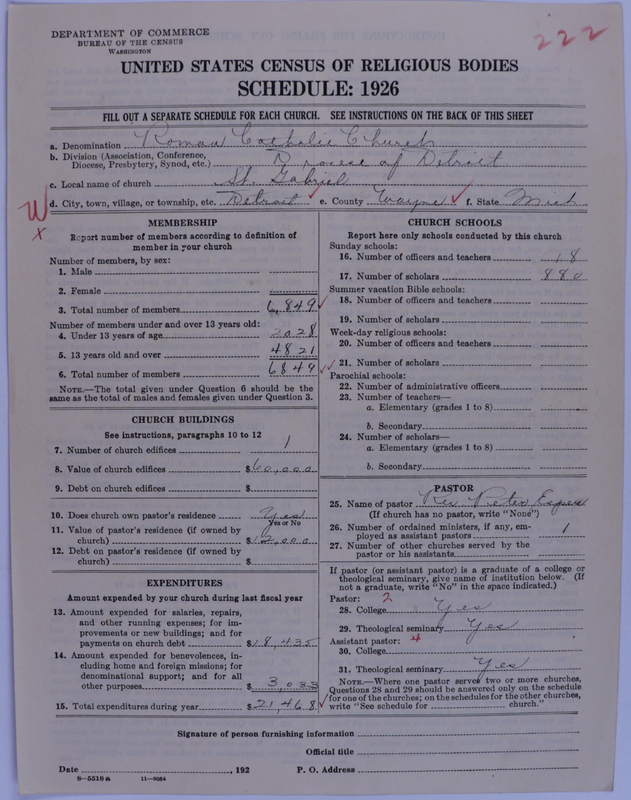 DEPARTMENT OF COMMERCE
BUREAU OF THE CENSUS
WASHINGTON
222
UNITED STATES CENSUS OF RELIGIOUS BODIES
SCHEDULE: 1926
FILL OUT A SEPARATE SCHEDULE FOR EACH CHURCH. SEE INSTRUCTIONS ON THE BACK OF THIS SHEET
a. Denomination Roman Catholic Church
b. Division (Association, Conference, Diocese, Presbytery, Synod, etc.) Diocese of Detroit
c. Local name of church St. Gabriel
d. City, town, village, or township, etc. Detroit e. County Wayne f. State Mich
W
x
MEMBERSHIP
Report number of members according to definition of
member in your church
Number of members, by sex:
1. Male
2. Female
3. Total number of members 6,849
Number of members under and over 13 years old:
4. Under 13 years of age 2028
5. 13 years old and over 4821
6. Total number of members 6849
NOTE.—The total given under Question 6 should be the
same as the total of males and females given under Question 3.
CHURCH BUILDINGS
See instructions, paragraphs 10 to 12
7. Number of church edifices 1
8. Value of church edifices $60,000
9. Debt on church edifices $
10. Does church own pastor's residence Yes
Yes or No
11. Value of pastor's residence (if owned by
church) $12,000
12. Debt on pastor's residence (if owned by
church) $
EXPENDITURES
Amount expended by church during last fiscal year
13. Amount expended for salaries, repairs,
and other running expenses; for im-
provements or new buildings; and for
payments on church debt $18,435
14. Amount expended for benevolences, in-
cluding home and foreign missions; for
denominational support; and for all
other purposes $3,033
15. Total expenditures during year $21,468
CHURCH SCHOOLS
Report here only schools conducted by this church
Sunday schools:
16. Number of officers and teachers 18
17. Number of scholars 880
Summer vacation Bible schools:
18. Number of officers and teachers
19. Number of scholars
Week-day religious schools:
20. Number of officers and teachers
21. Number of scholars
Parochial schools:
22. Number of administrative officers
23. Number of teachers—
a. Elementary (grades 1 to 8)
b. Secondary
24. Number of scholars—
a. Elementary (grades 1 to 8)
b. Secondary
PASTOR
25. Name of pastor Rev Peter Esper
(If church has no pastor, write "None")
26. Number of ordained ministers, if any, em-
ployed as assistant pastors 1
27. Number of other churches served by the
pastor or his assistants
If pastor (or assistant pastor) is a graduate of a college or
theological seminary, give name of institution below. (If
not a graduate, write "No" in the space indicated.)
Pastor: 2
28. College Yes
29. Theological seminary Yes
Assistant pastor: 4
30. College
31. Theological seminary Yes
NOTE.—Where one pastor serves two or more churches,
Questions 28 and 29 should be answered only on the schedule
for one of the churches; on the schedules for the other churches,
write "See schedule for church."
Signature of person furnishing information
Official title
Date , 192 P. O. Address
8—5518a 11—9564